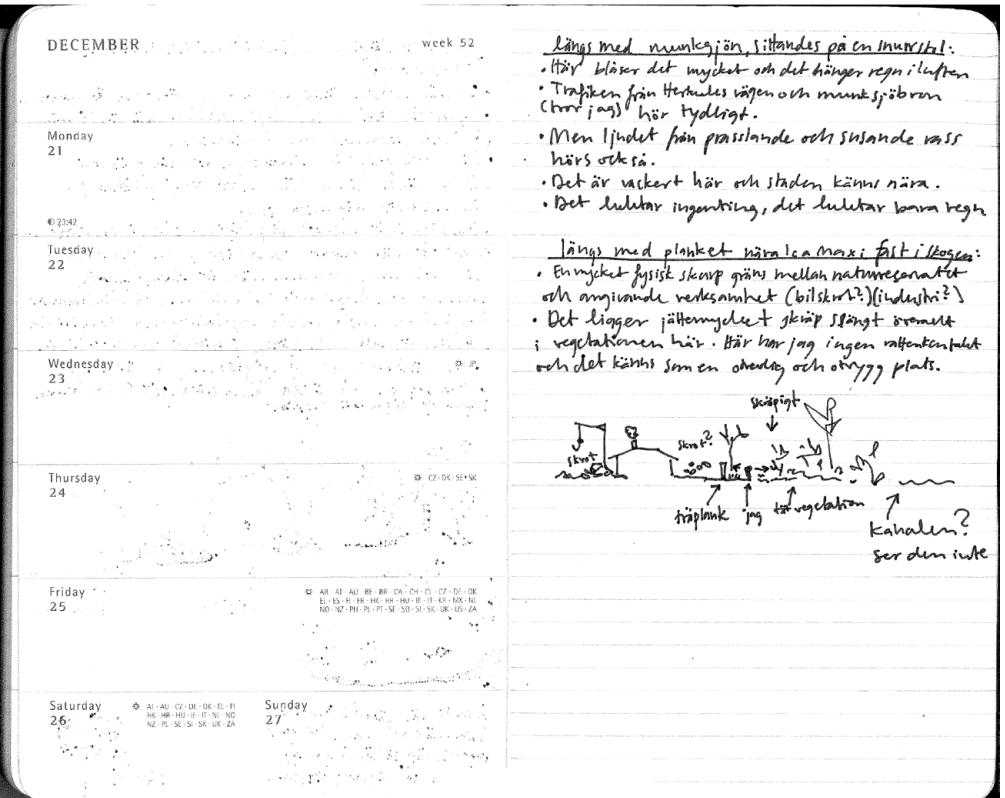 DECEMBER
week 52
Monday
21
23:42
Tuesday
22
Wednesday
23
JP
Thursday
24
CZ · DK · SE · SK
Friday
25
AR · AT · AU · BE · BR · CA · CH · CL · CZ · DE · DK
EL · ES · FI · FR · HK · HR · HU · IE · IT · KR · MX · NL
NO · NZ · PH · PL · PT · SE · SG · SI · SK · UK · US · ZA
Saturday
26
AT · AU · CZ · DE · DK · EL · FI
HK · HR · HU · IE · IT · NL · NO
NZ · PL · SE · SI · SK · UK · ZA
Sunday
27
längs med munksjön, sittandes på en
• Här blåser det mycket och det hänger regn i luften
• Trafiken från Herkules vägen och munksjöbron
(tror jag) hör tydligt.
• Men ljudet från prasslande och susande vass
hörs också.
• Det är vackert här och staden känns nära.
• Det luktar ingenting, det luktar bara regn
längs med planket nära Ica Maxi fast i skogen:
• En mycket fysisk skarp gräns mellan naturreservatet
och angivande verksamhet (bilskrot?)(industri?)
• Det ligger jättemycket skräp slängt överallt
i vegetationen här. Här har jag ingen vattenkontakt
och det känns som en otrevlig och otrygg plats.
skräpigt
skrot
skrot?
träplank
jag
tät vegetation
kanalen?
ser den inte